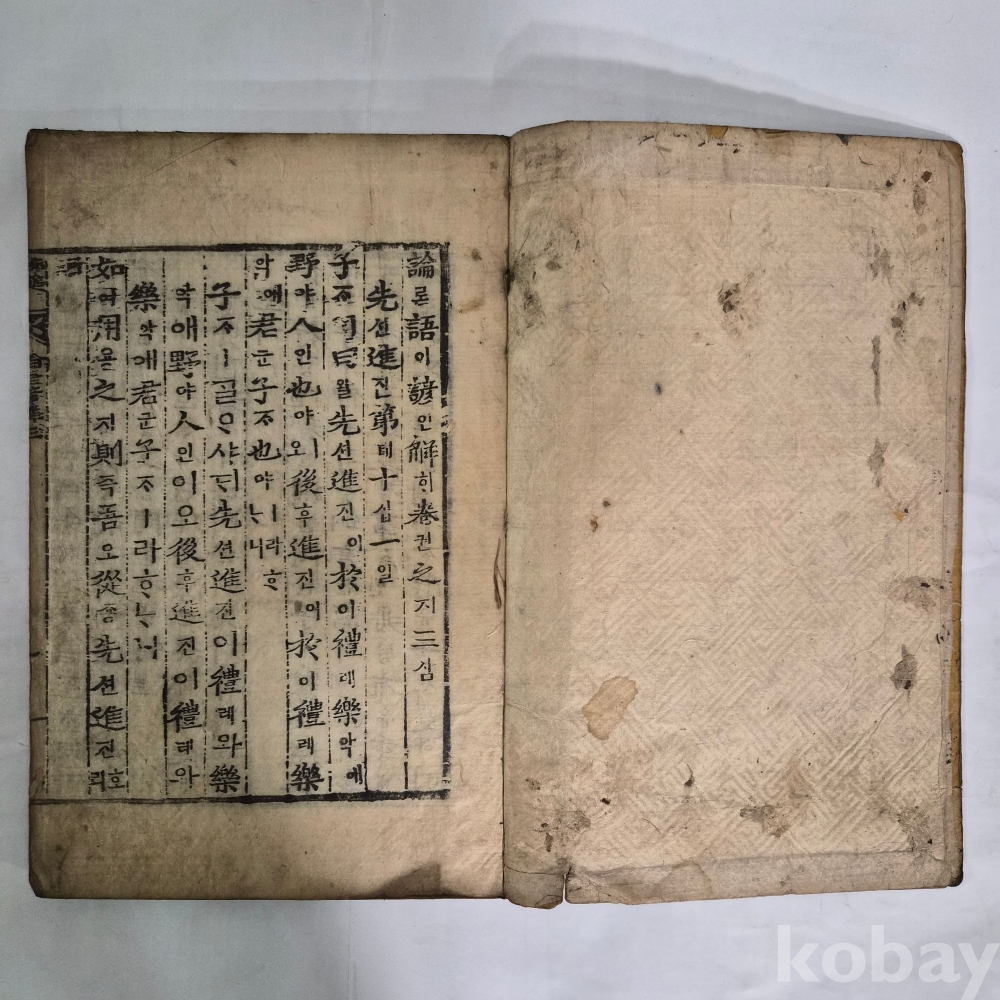 論론語어諺언解ᄒᆡ卷권之지三삼
先션進진第뎨十십一일
子ᄌᆞㅣ曰왈先션進진이於어禮례樂악애
野야人인也야ㅣ오後후進진이於어禮례樂
악애君군子ᄌᆞ也야ㅣ라ᄒᆞᄂᆞ니
子ᄌᆞㅣᄀᆞᆯᄋᆞ샤ᄃᆡ先션進진이禮례와樂
악애野야人인이오後후進진이禮례와
樂악애君군子ᄌᆞㅣ라ᄒᆞᄂᆞ니
如여用용之지則즉吾오從종先션進진호리
라
kobay